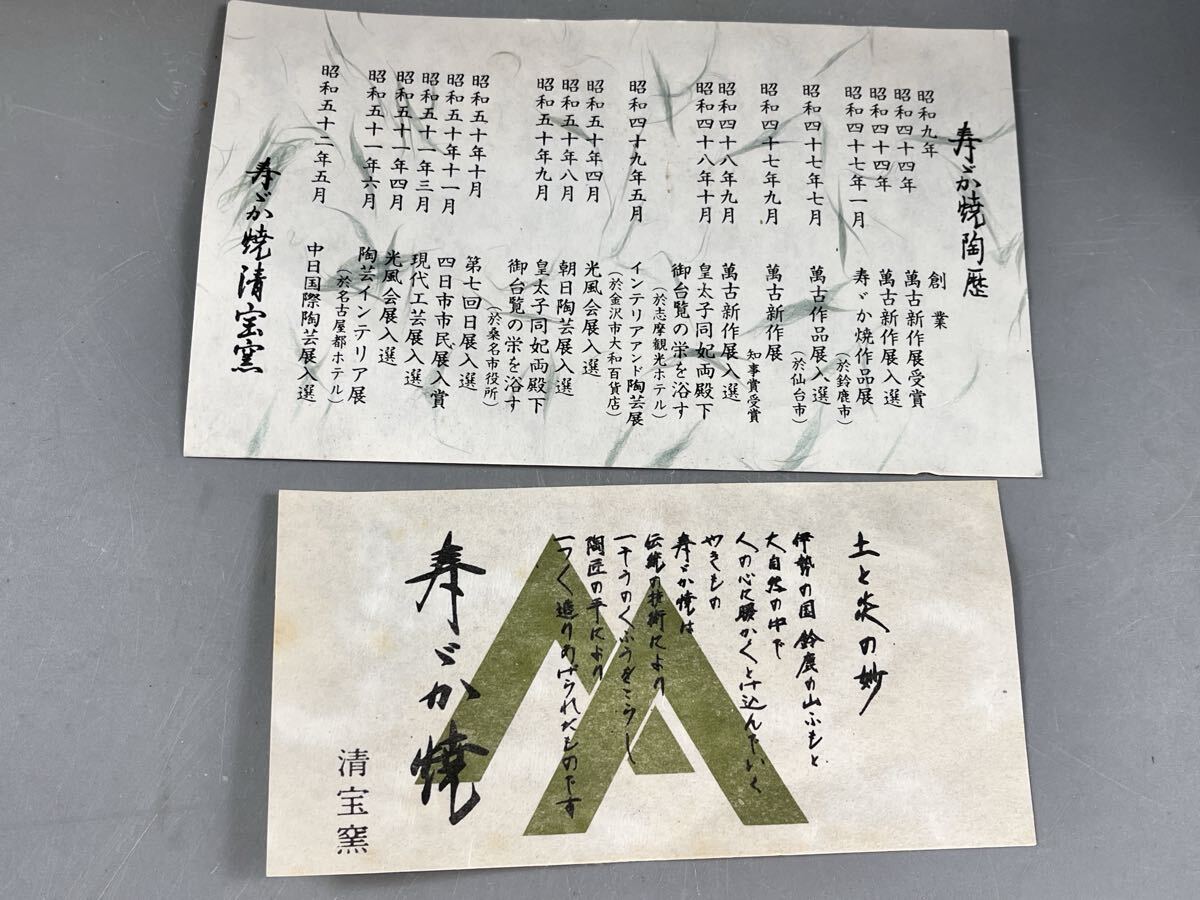 寿ゞか焼陶歴
昭和九年　創業
昭和四十四年　萬古新作展受賞
昭和四十四年　萬古新作展入選
昭和四十七年一月　寿ゞか焼作品展
（於鈴鹿市）
昭和四十七年七月　萬古作品展入選
（於仙台市）
昭和四十七年九月　萬古新作展
知事賞受賞
昭和四十八年九月　萬古新作展入選
昭和四十八年十月　皇太子同妃両殿下
御台覧の栄を浴す
（於志摩観光ホテル）
昭和四十九年五月　インテリアアンド陶芸展
（於金沢市大和百貨店）
昭和五十年四月　光風会展入選
昭和五十年八月　朝日陶芸展入選
昭和五十年九月　皇太子同妃両殿下
御台覧の栄を浴す
（於桑名市役所）
昭和五十年十月　第七回日展入選
昭和五十年十一月　四日市市民展入賞
昭和五十一年三月　現代工芸展入選
昭和五十一年四月　光風会展入選
昭和五十一年六月　陶芸インテリア展
（於名古屋都ホテル）
昭和五十二年五月　中日国際陶芸展入選
寿ゞか焼清宝窯
土と炎の妙
伊勢の国 鈴鹿の山ふもと
大自然の中で
人の心に暖かくとけ込んでいく
やきもの
寿ゞか焼は
伝統の技術により
一そうのくふうをこらし
陶匠の手により
一つ〱造りあげられたものです
寿ゞか焼
清宝窯